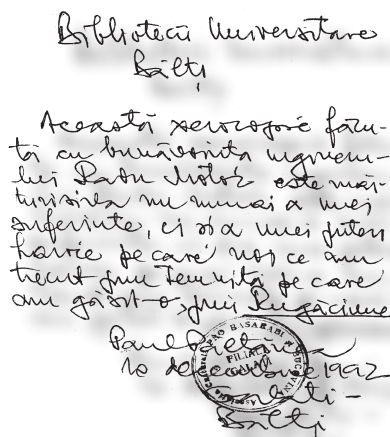 Bibliotecii Universitare
Bălți
Această xerocopie făcu-
tă cu bunăvoința ingineru-
lui Radu este măr-
turisirea nu numai a unei
suferințe, ci și a unei puteri
pe care noi ce am
trecut prin Temniță pe care
am găsit-o, prin Rugăciune
Paul
10 decembrie 1992
PRO BASARABIA BUCOVINA
FILIALA
Bălți